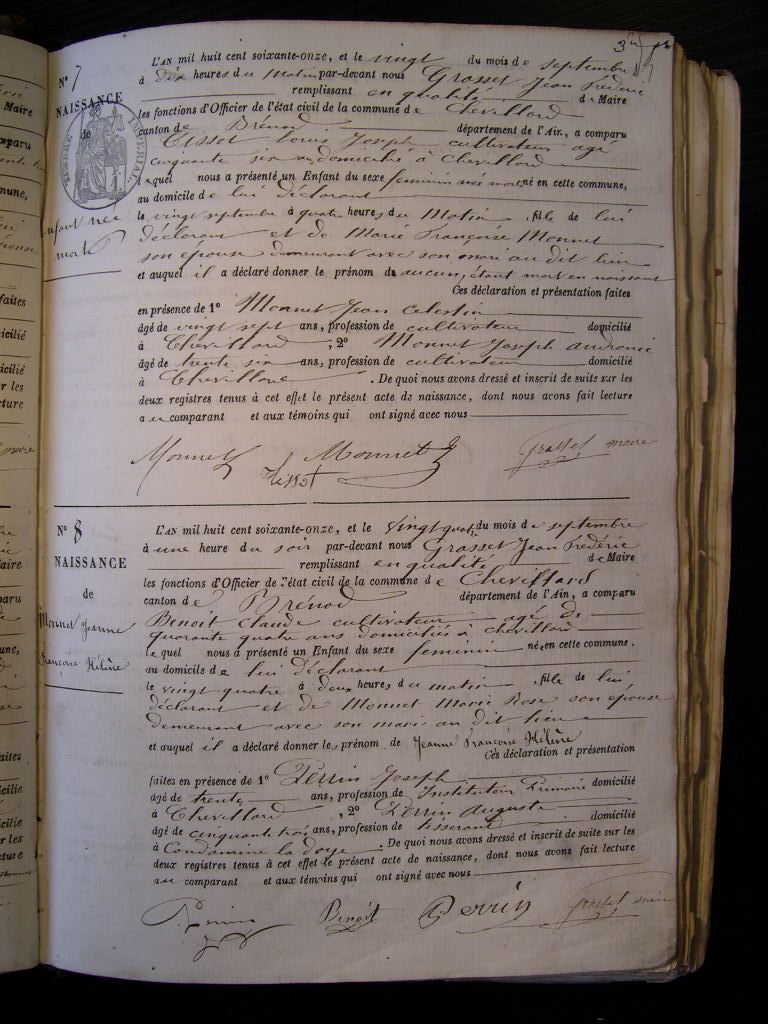 3
N° 7
NAISSANCE
de
enfant née
morte
L'AN mil huit cent soixante-onze, et le vingt du mois de septembre
à dix heures du matin par-devant nous Grasset Jean Frédéric
remplissant en qualité de Maire
les fonctions d'Officier de l'état civil de la commune de Chevillard
canton de Brénod département de l'Ain, a comparu
Tissot Louis Joseph cultivateur agé
cinquante six ans domicilié à Chevillard
lequel nous a présenté un Enfant du sexe feminin né en cette commune,
au domicile de lui déclarant
le vingt septembre à quatre heures du Matin, fille de lui
déclarant et de Marie Françoise Monnet
son épouse demeurant avec son mari au dit lieu
et auquel il a déclaré donner le prénom de aucun, étant mort en naissant
Ces déclaration et présentation faites
en présence de 1° Monnet Jean Celestin
âgé de vingt sept ans, profession de cultivateur domicilié
à Chevillard, 2° Monnet Joseph
âgé de trente six ans, profession de cultivateur domicilié
à Chevillard. De quoi nous avons dressé et inscrit de suite sur les
deux registres tenus à cet effet le présent acte de naissance, dont nous avons fait lecture
au comparant et aux témoins qui ont signé avec nous
Monnet Tissot Monnet Grasset maire
N° 8
NAISSANCE
de
Monnet Jeanne
Françoise Hélène
L'AN mil huit cent soixante-onze, et le vingt quatre du mois de septembre
à une heure du soir par-devant nous Grasset Jean Frédéric
remplissant en qualité de Maire
les fonctions d'Officier de l'état civil de la commune de Chevillard
canton de Brénod département de l'Ain, a comparu
Benoit Claude cultivateur agé de
quarante quatre ans domicilié à Chevillard
lequel nous a présenté un Enfant du sexe feminin né en cette commune,
au domicile de lui déclarant
le vingt quatre à deux heures du matin, fille de lui
déclarant et de Monnet Marie Rose son épouse
demeurant avec son mari au dit lieu
et auquel il a déclaré donner le prénom de Jeanne Françoise Hélène
Ces déclaration et présentation
faites en présence de 1° Perrin Joseph domicilié
âgé de trente ans, profession de Instituteur Primaire
à Chevillard, 2° Perrin Auguste domicilié
âgé de cinquante trois ans, profession de tisserand
à Condamine la doye. De quoi nous avons dressé et inscrit de suite sur les
deux registres tenus à cet effet le présent acte de naissance, dont nous avons fait lecture
au comparant et aux témoins qui ont signé avec nous
Perrin Benoit Perrin Grasset maire